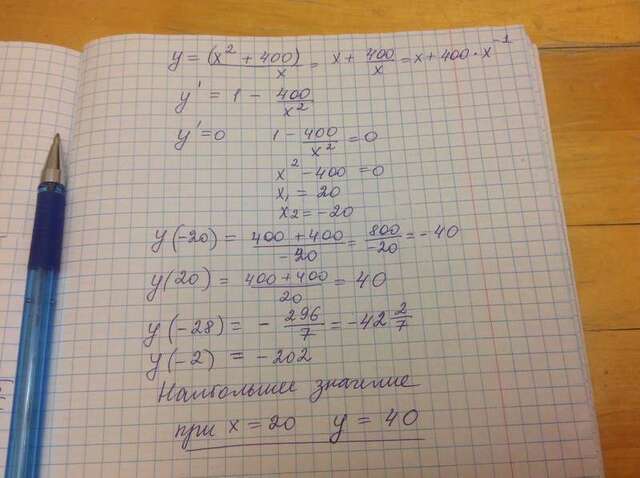 y = (x² + 400)/x = x + 400/x = x + 400 · x⁻¹
y' = 1 - 400/x²
y' = 0 1 - 400/x² = 0
x² - 400 = 0
x₁ = 20
x₂ = -20
y(-20) = (400 + 400)/-20 = 800/-20 = -40
y(20) = (400 + 400)/20 = 40
y(-28) = - 296/7 = -42 2/7
y(-2) = -202
Наибольшее значение
при x = 20 y = 40